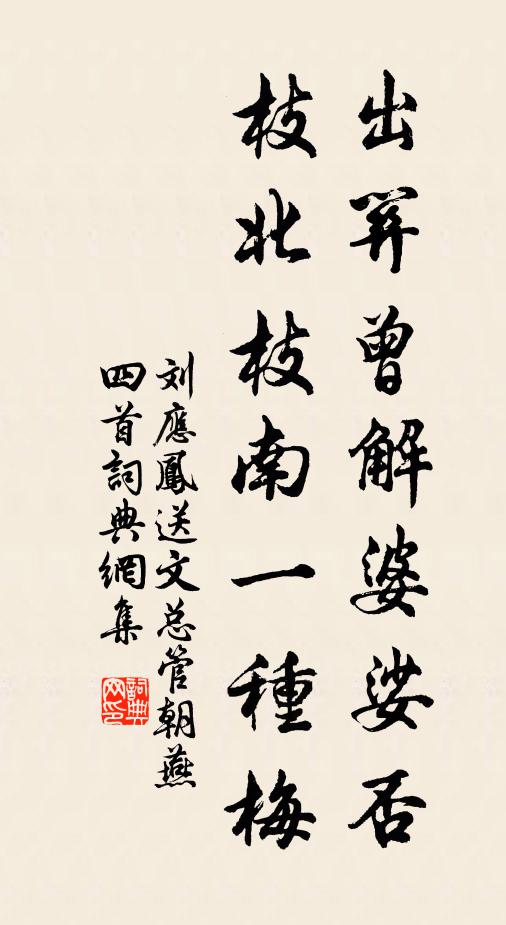 出笄曾解婆娑否
枝北枝南一種梅
刘應鳳送文总管朝燕
四首詞典網集
詞典
网印